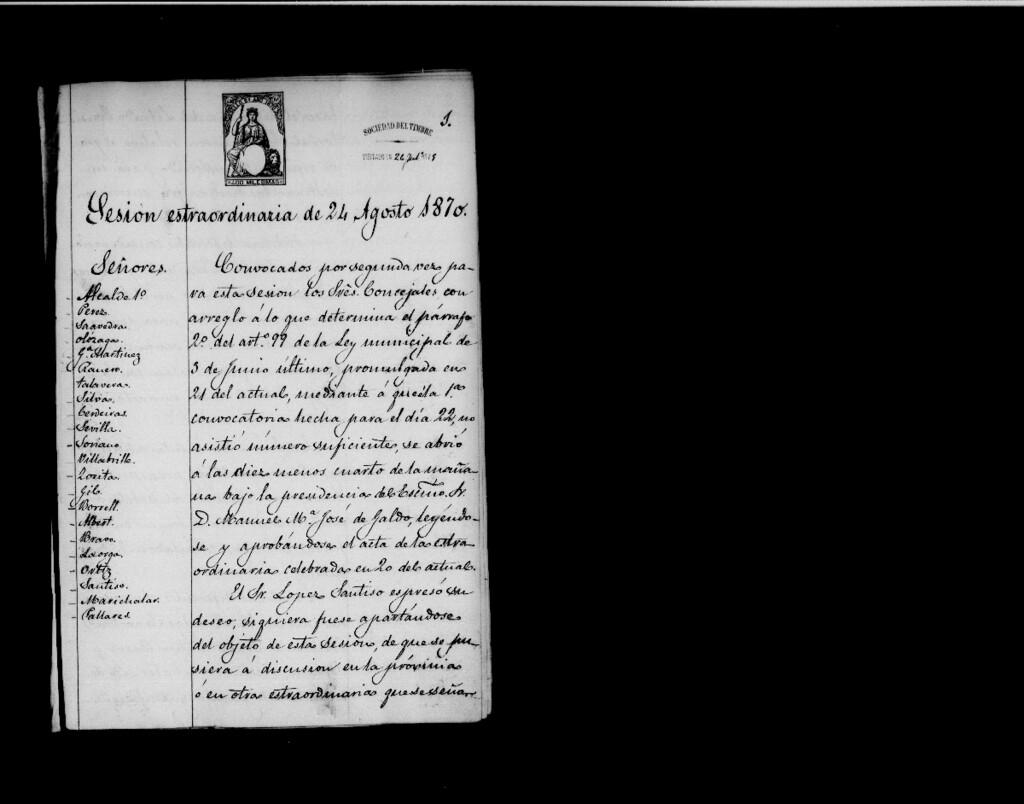 1.
SOCIEDAD DEL TIMBRE
Sesion estraordinaria de 24 Agosto 1870.
Señores.
Alcalde 1º
Perez
Saavedra
Olózaga
Gª Martinez
Ranero
Talavera
Silva
Cerdeiras
Sevilla
Soriano
Villabrille
Zorita
Gil
Borrell
Albert
Bravo
Lasorga
Ortiz
Santiso
Marichalar
Pallares
Convocados por segunda vez pa-
ra esta sesion los Sres. Concejales con
arreglo á lo que determina el párrafo
2º del artº 99 de la Ley municipal de
3 de Junio último, promulgada en
21 del actual, mediante á que á la 1ª
convocatoria hecha para el día 22, no
asistió número suficiente, se abrió
á las diez menos cuarto de la maña-
na bajo la presidencia del Escmo. Sr.
D. Manuel Mª José de Galdo, leyéndo-
se y aprobándose el acta de la estra
ordinaria celebrada en 20 del actual.
El Sr. Lopez Santiso espresó su
deseo, siquiera fuese apartándose
del objeto de esta sesion, de que se pu-
siera á discusion en la próxima
ó en otra estraordinaria que se seña-